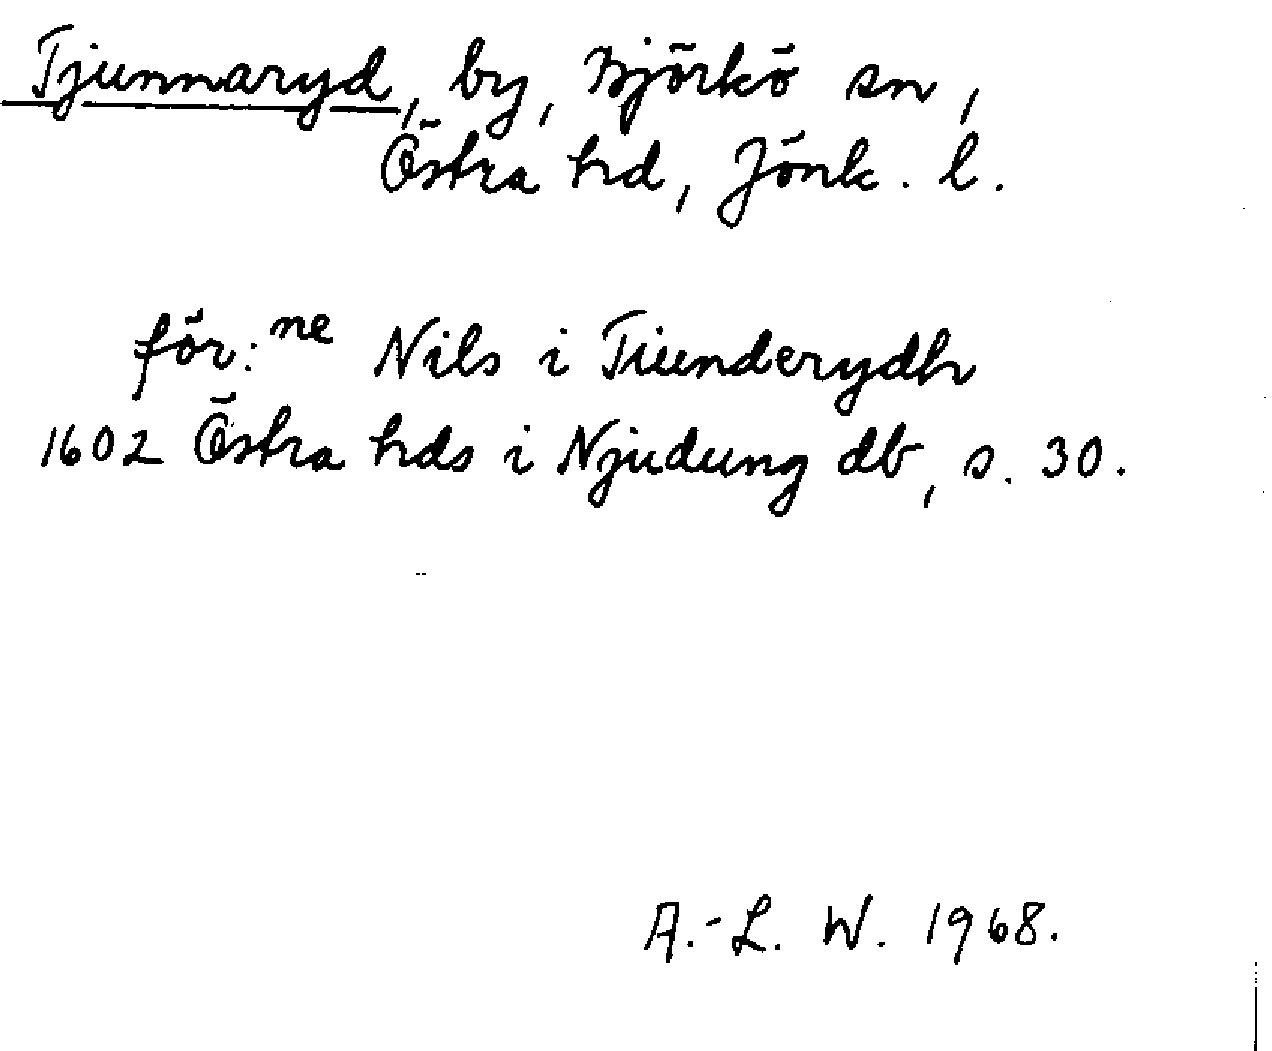 Tjunnaryd, by, Björkö sn,
Östra hd, Jönk. l.
för:ne Nils i Tiunderydh
1602 Östra hds i Njudung db, s. 30.
A.-L. W. 1968.